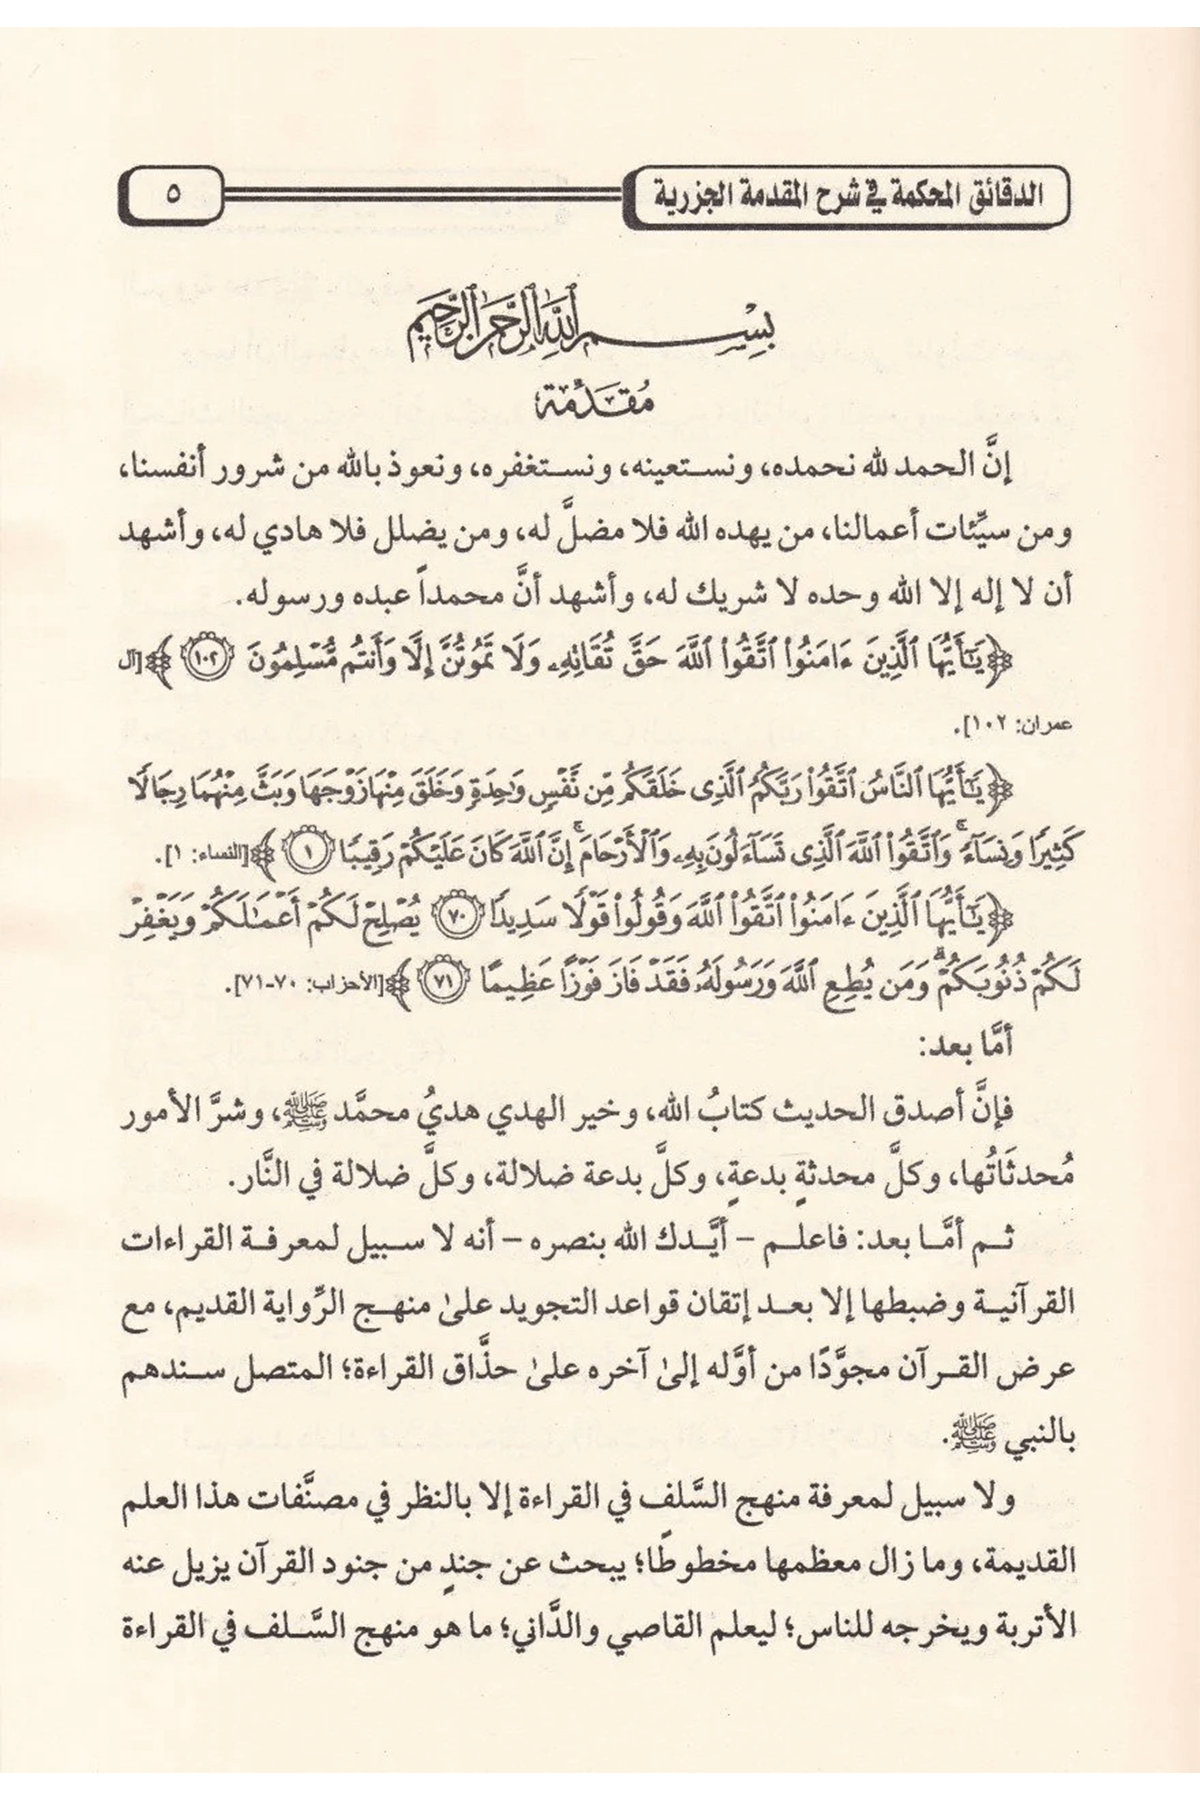 الدقائق المحكمة في شرح المقدمة الجزرية
٥
بِسْمِ ٱللَّهِ ٱلرَّحْمَٰنِ ٱلرَّحِيمِ
مُقَدِّمَة
إنَّ الحمد لله نحمده، ونستعينه، ونستغفره، ونعوذ بالله من شرور أنفسنا،
ومن سيِّئات أعمالنا، من يهده الله فلا مضلَّ له، ومن يضلل فلا هادي له، وأشهد
أن لا إله إلا الله وحده لا شريك له، وأشهد أنَّ محمداً عبده ورسوله.
﴿يَٰٓأَيُّهَا ٱلَّذِينَ ءَامَنُوا۟ ٱتَّقُوا۟ ٱللَّهَ حَقَّ تُقَاتِهِۦ وَلَا تَمُوتُنَّ إِلَّا وَأَنتُم مُّسْلِمُونَ ١٠٢﴾ [آل
عمران: ١٠٢].
﴿يَٰٓأَيُّهَا ٱلنَّاسُ ٱتَّقُوا۟ رَبَّكُمُ ٱلَّذِى خَلَقَكُم مِّن نَّفْسٍ وَٰحِدَةٍ وَخَلَقَ مِنْهَا زَوْجَهَا وَبَثَّ مِنْهُمَا رِجَالًا
كَثِيرًا وَنِسَآءً ۚ وَٱتَّقُوا۟ ٱللَّهَ ٱلَّذِى تَسَآءَلُونَ بِهِۦ وَٱلْأَرْحَامَ ۚ إِنَّ ٱللَّهَ كَانَ عَلَيْكُمْ رَقِيبًا ١﴾ [النساء: ١].
﴿يَٰٓأَيُّهَا ٱلَّذِينَ ءَامَنُوا۟ ٱتَّقُوا۟ ٱللَّهَ وَقُولُوا۟ قَوْلًا سَدِيدًا ٧٠ يُصْلِحْ لَكُمْ أَعْمَٰلَكُمْ وَيَغْفِرْ
لَكُمْ ذُنُوبَكُمْ ۗ وَمَن يُطِعِ ٱللَّهَ وَرَسُولَهُۥ فَقَدْ فَازَ فَوْزًا عَظِيمًا ٧١﴾ [الأحزاب: ٧٠-٧١].
أمَّا بعد:
فإنَّ أصدق الحديث كتابُ الله، وخير الهدي هديُ محمَّد ﷺ، وشرَّ الأمور
مُحدثَاتُها، وكلَّ محدثةٍ بدعةٍ، وكلَّ بدعة ضلالة، وكلَّ ضلالة في النَّار.
ثم أمَّا بعد: فاعلم – أيَّدك الله بنصره – أنه لا سبيل لمعرفة القراءات
القرآنية وضبطها إلا بعد إتقان قواعد التجويد علىٰ منهج الرِّواية القديم، مع
عرض القرآن مجوَّدًا من أوَّله إلىٰ آخره علىٰ حذَّاق القراءة؛ المتصل سندهم
بالنبي ﷺ.
ولا سبيل لمعرفة منهج السَّلف في القراءة إلا بالنظر في مصنَّفات هذا العلم
القديمة، وما زال معظمها مخطوطًا؛ يبحث عن جندٍ من جنود القرآن يزيل عنه
الأتربة ويخرجه للناس؛ ليعلم القاصي والدَّاني؛ ما هو منهج السَّلف في القراءة